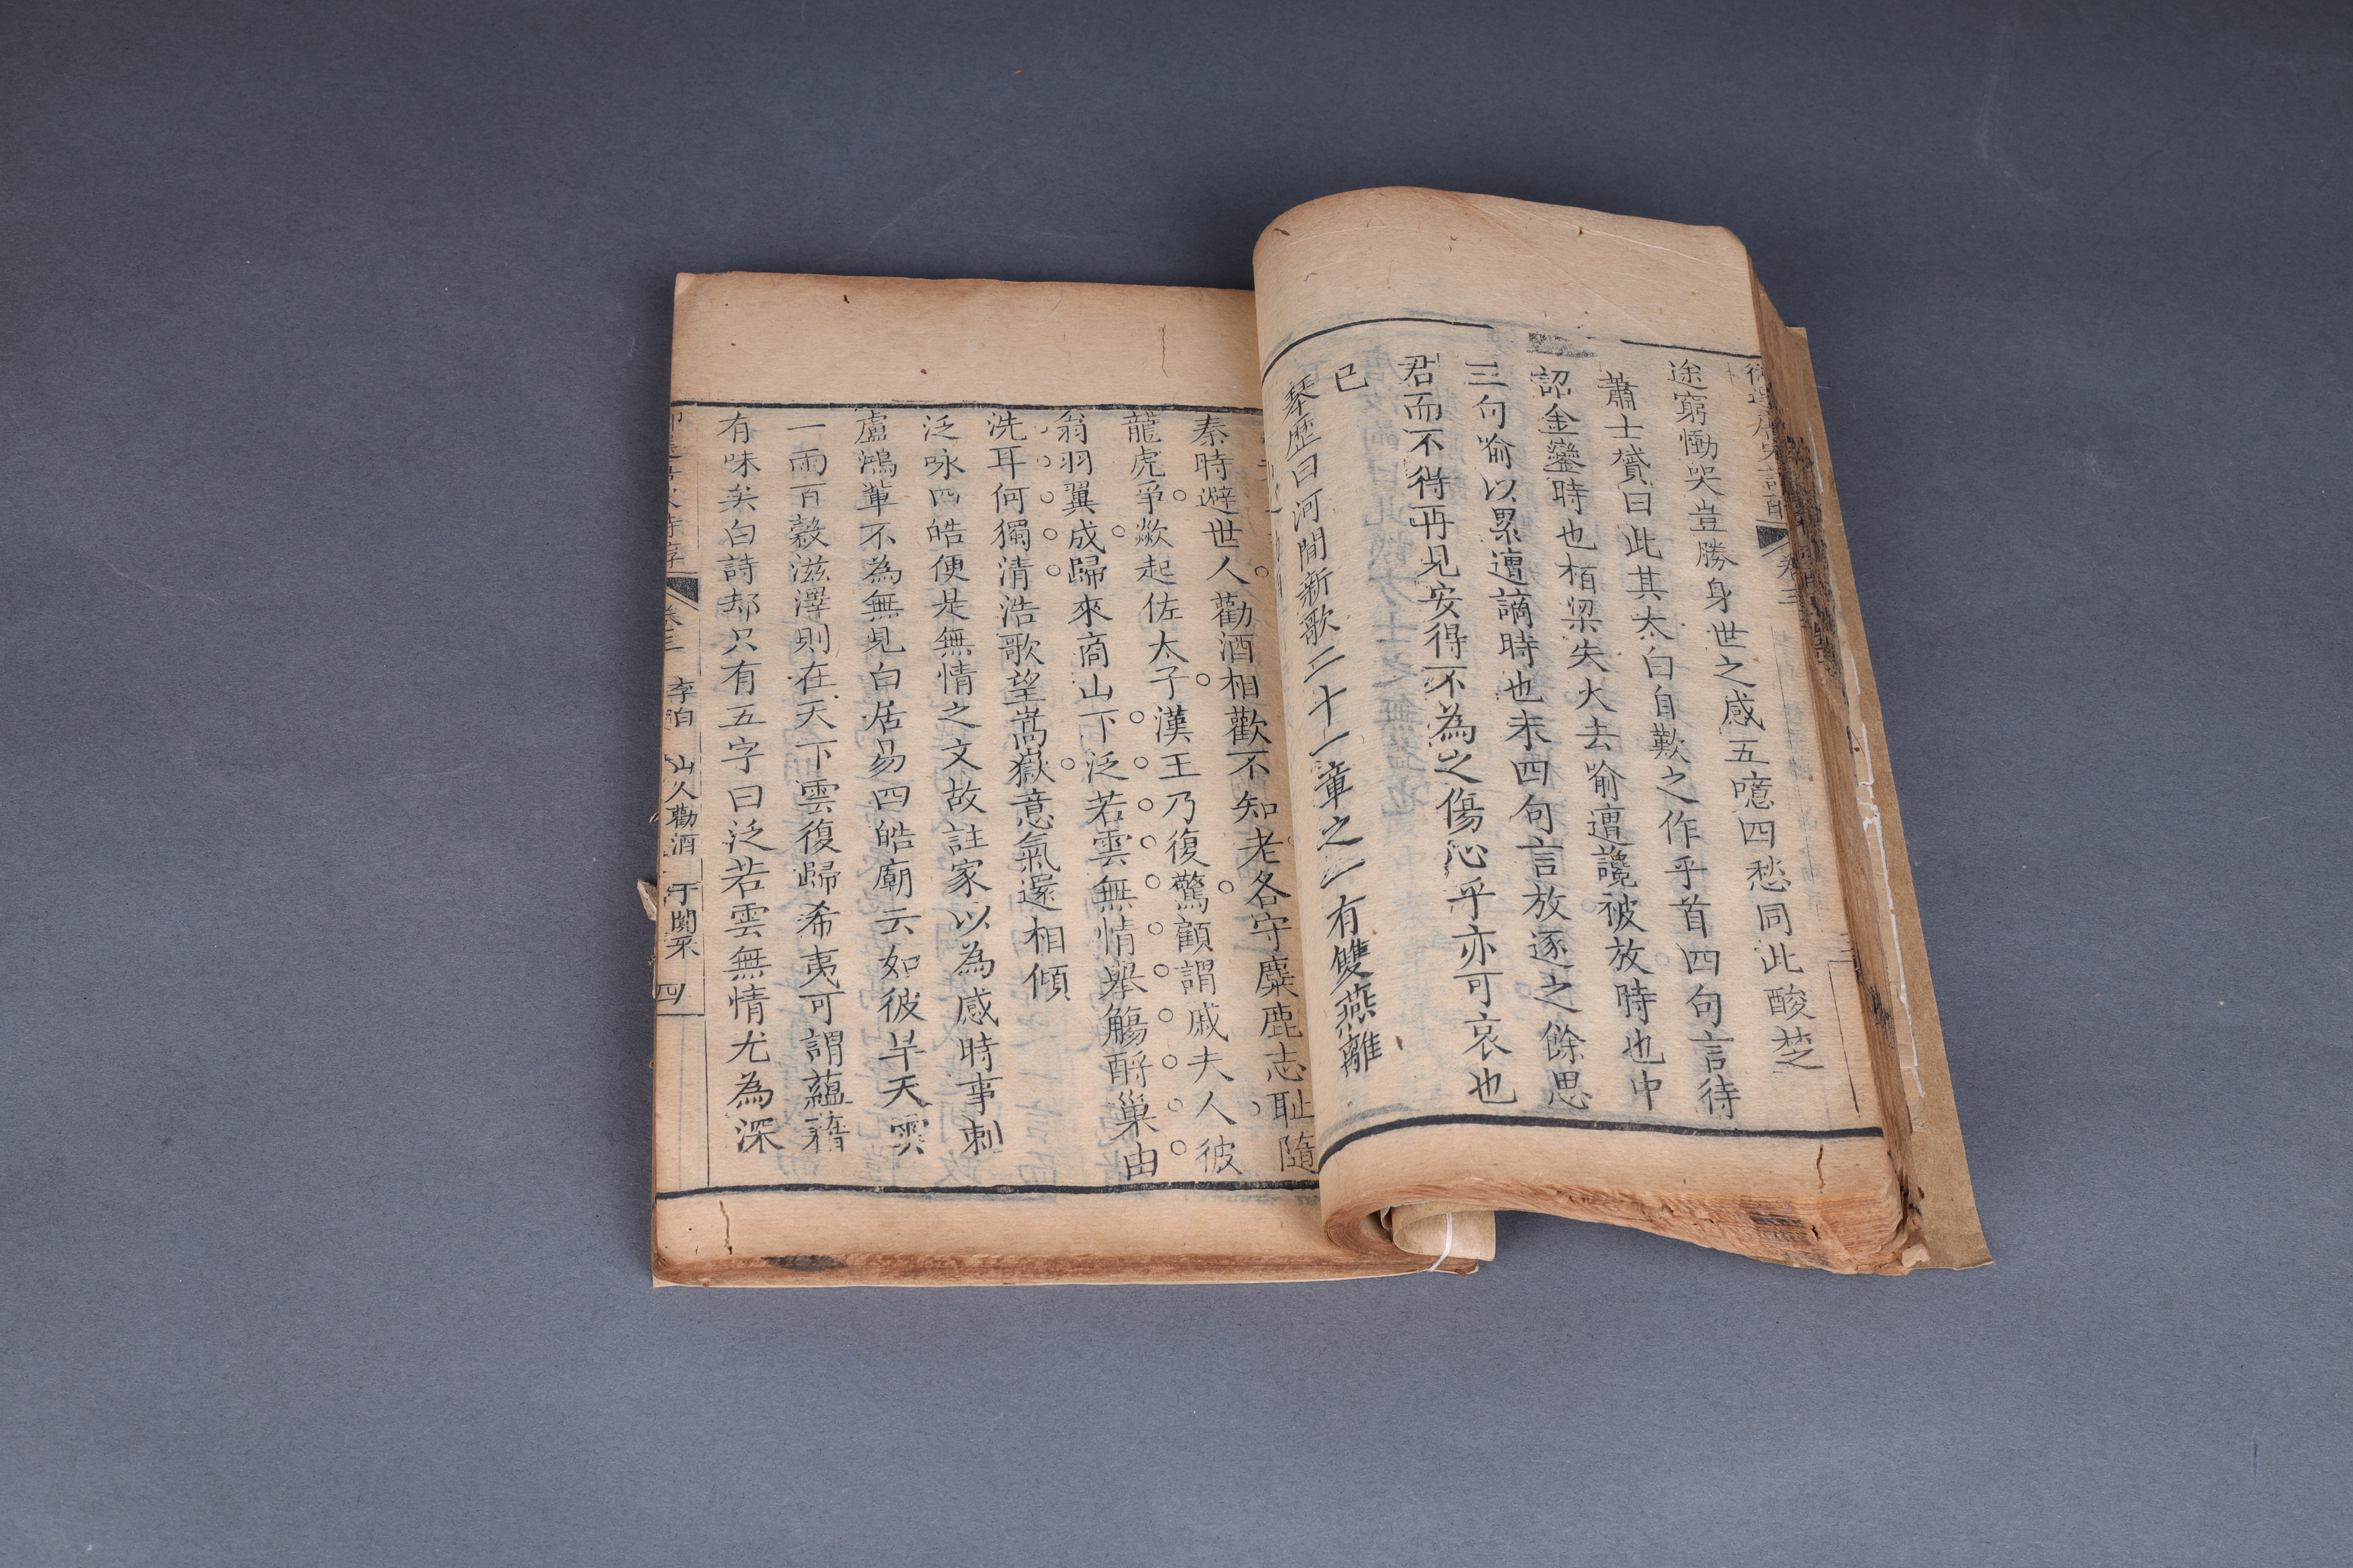 途窮慟哭豈勝身世之感五噫四愁同此酸楚
蕭士贇曰此其太白自歎之作乎首四句言待
詔金鑾時也栢梁失火去喻遭讒被放時也中
三句喻以累遭謫時也末四句言放逐之餘思
君而不得再見安得不為之傷心乎亦可哀也
已
琴歷曰河間新歌二十一章之一有雙燕離
秦時避世人勸酒相歡不知老各守麋鹿志恥隨
龍虎爭欻起佐太子漢王乃復驚顧謂戚夫人彼
翁羽翼成歸來商山下泛若雲無情舉觴酹巢由
洗耳何獨清浩歌望嵩嶽意氣還相傾
泛咏四皓便是無情之文故註家以為感時事刺
盧鴻輩不為無見白居易四皓廟云如彼旱天雲
一雨百穀滋澤則在天下雲復歸希夷可謂蘊藉
有味矣白詩却只有五字曰泛若雲無情尤為深
卷三 李白 山人勸酒 于闐采 四